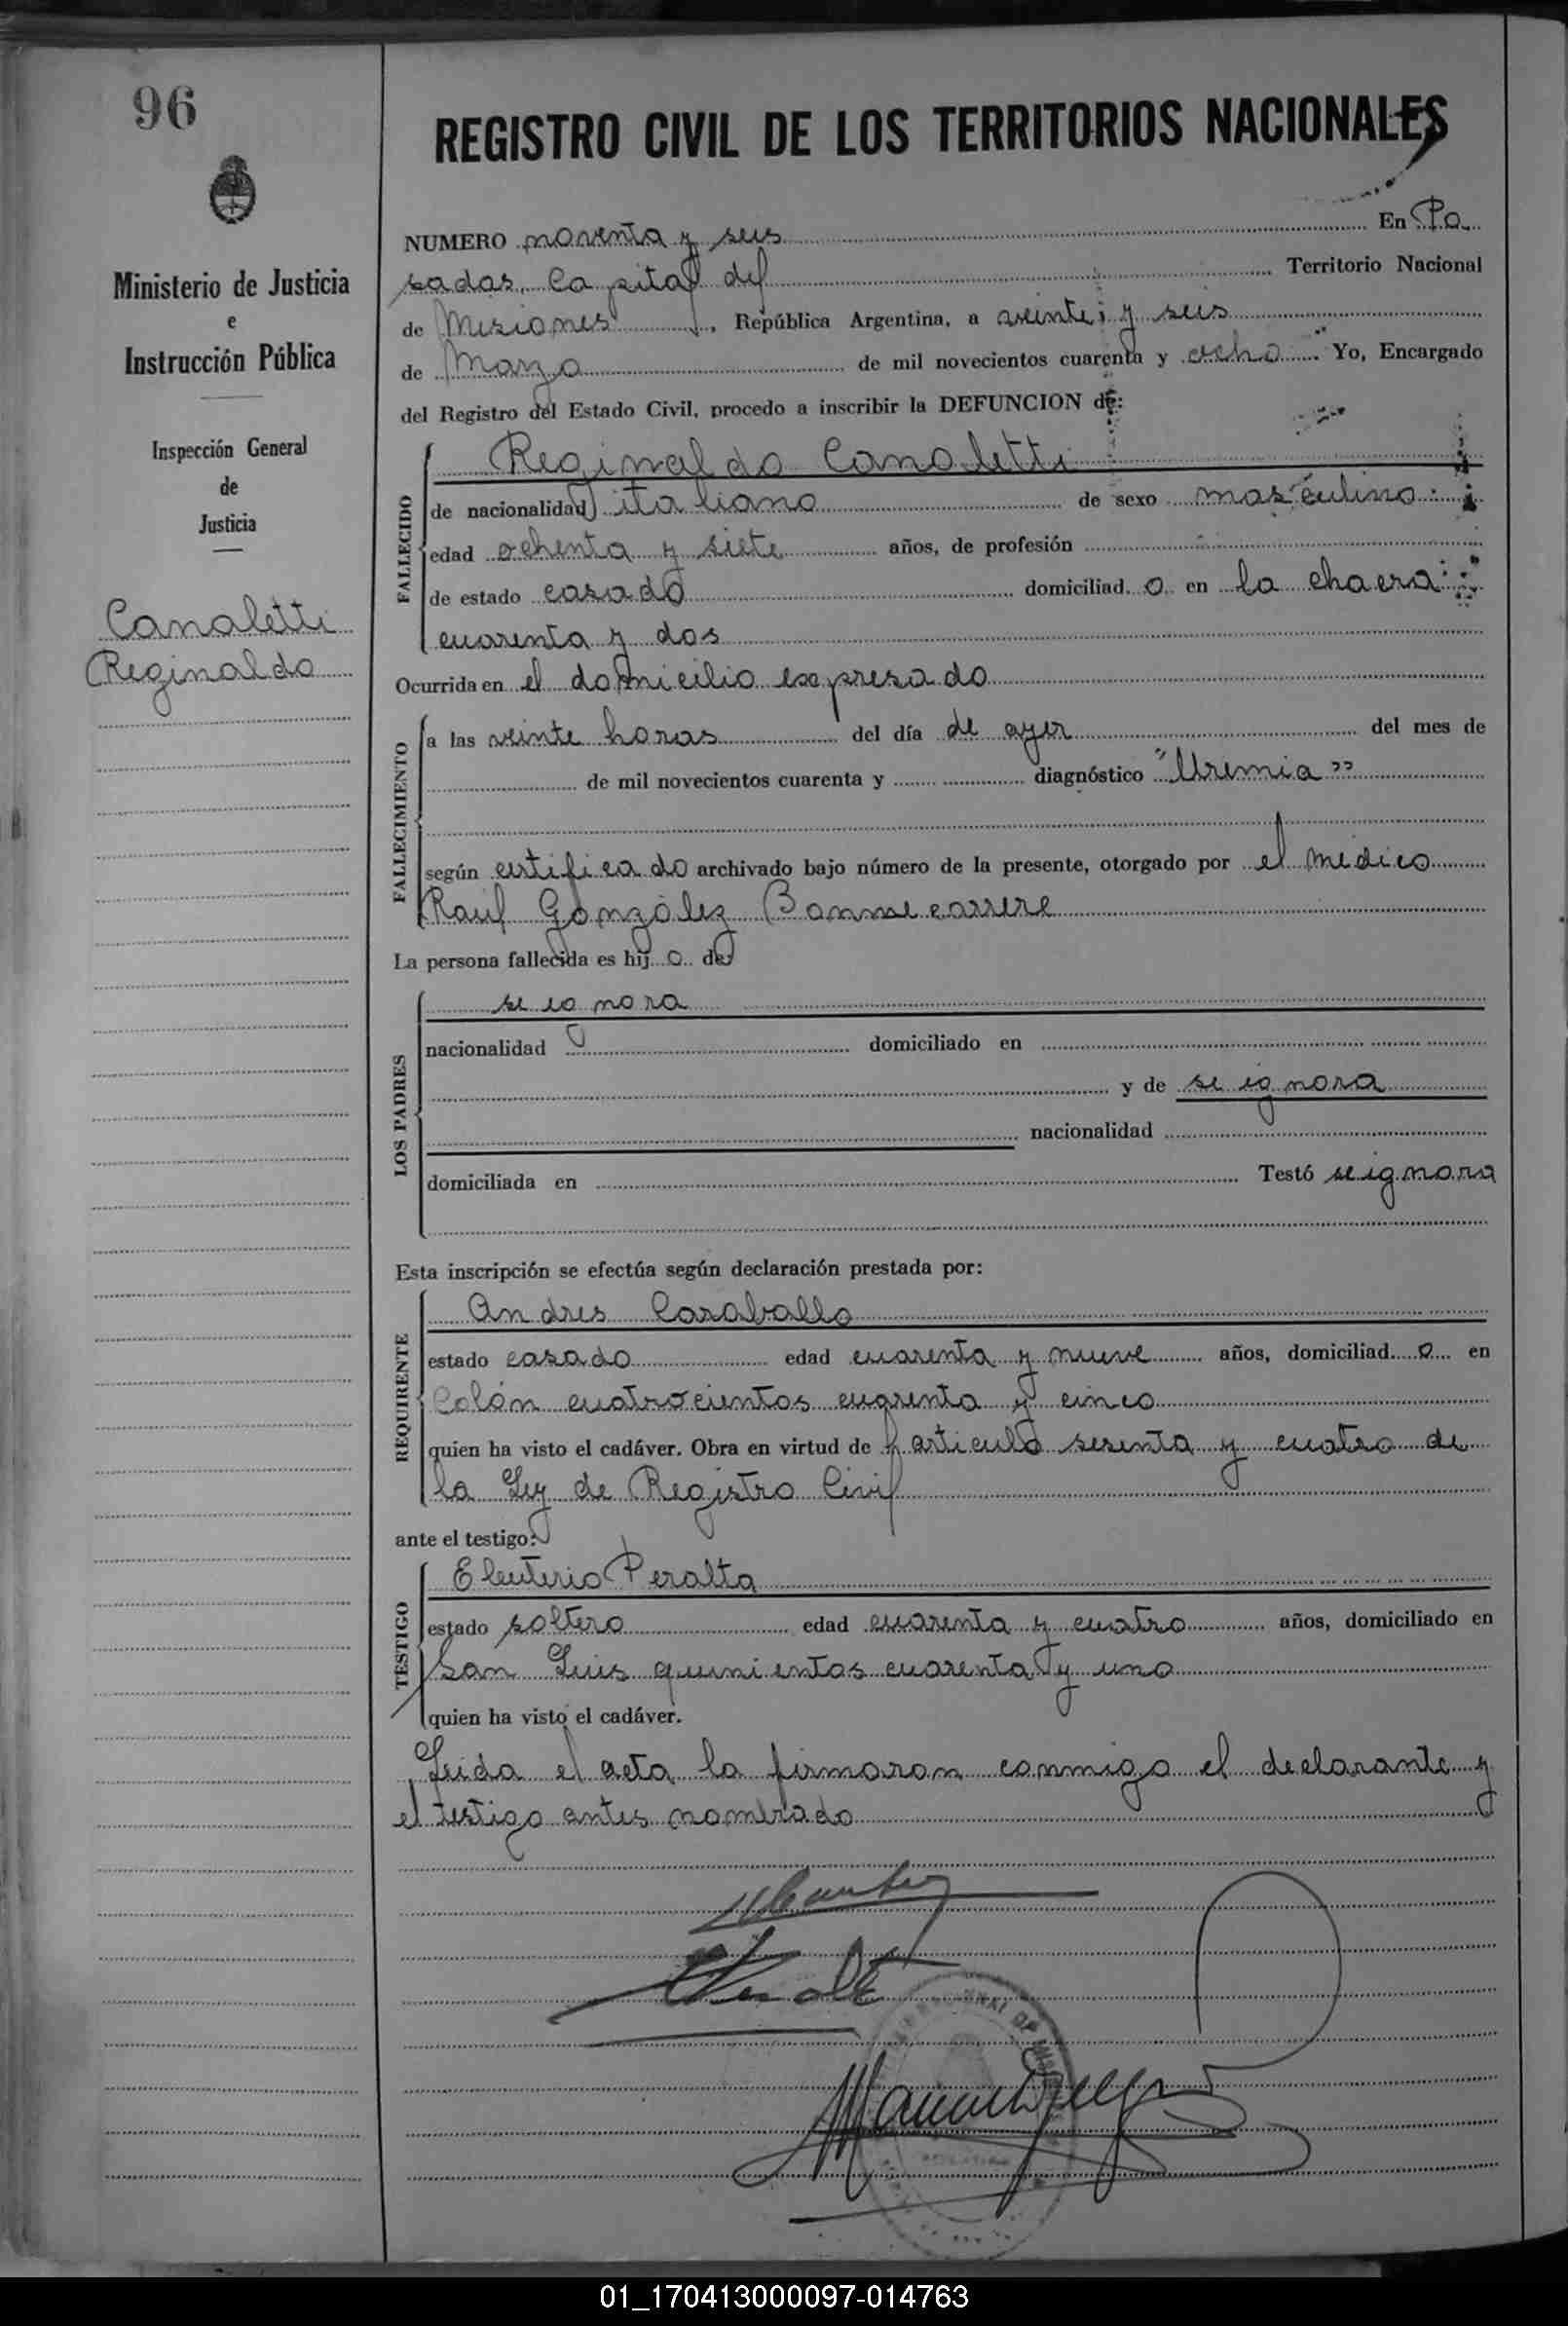 96
Ministerio de Justicia
e
Instrucción Pública
Inspección General
de
Justicia
Canaletti
Reginaldo
REGISTRO CIVIL DE LOS TERRITORIOS NACIONALES
NUMERO noventa y seis En Po
sadas, Capital del Territorio Nacional
de Misiones, República Argentina, a veinte y seis
de Marzo de mil novecientos cuarenta y ocho Yo, Encargado
del Registro del Estado Civil, procedo a inscribir la DEFUNCION de:
FALLECIDO
Reginaldo Canaletti
de nacionalidad italiano de sexo masculino
edad ochenta y siete años, de profesión
de estado casado domiciliad o en la chacra
cuarenta y dos
Ocurrida en el domicilio expresado
FALLECIMIENTO
a las veinte horas del día de ayer del mes de
de mil novecientos cuarenta y diagnóstico "Uremia"
según certificado archivado bajo número de la presente, otorgado por el médico
Raúl González Bonnecarrere
La persona fallecida es hij o de:
LOS PADRES
se ignora
nacionalidad domiciliado en
y de se ignora
nacionalidad
domiciliada en Testó se ignora
Esta inscripción se efectúa según declaración prestada por:
REQUIRENTE
Andres Caraballo
estado casado edad cuarenta y nueve años, domiciliad o en
Colón cuatrocientos cuarenta y cinco
quien ha visto el cadáver. Obra en virtud de l articulo sesenta y cuatro de
la Ley de Registro Civil
ante el testigo:
TESTIGO
Eleuterio Peralta
estado soltero edad cuarenta y cuatro años, domiciliado en
San Luis quinientos cuarenta y uno
quien ha visto el cadáver.
Leida el acta la firmaron conmigo el declarante y
el testigo antes nombrado
01_170413000097-014763